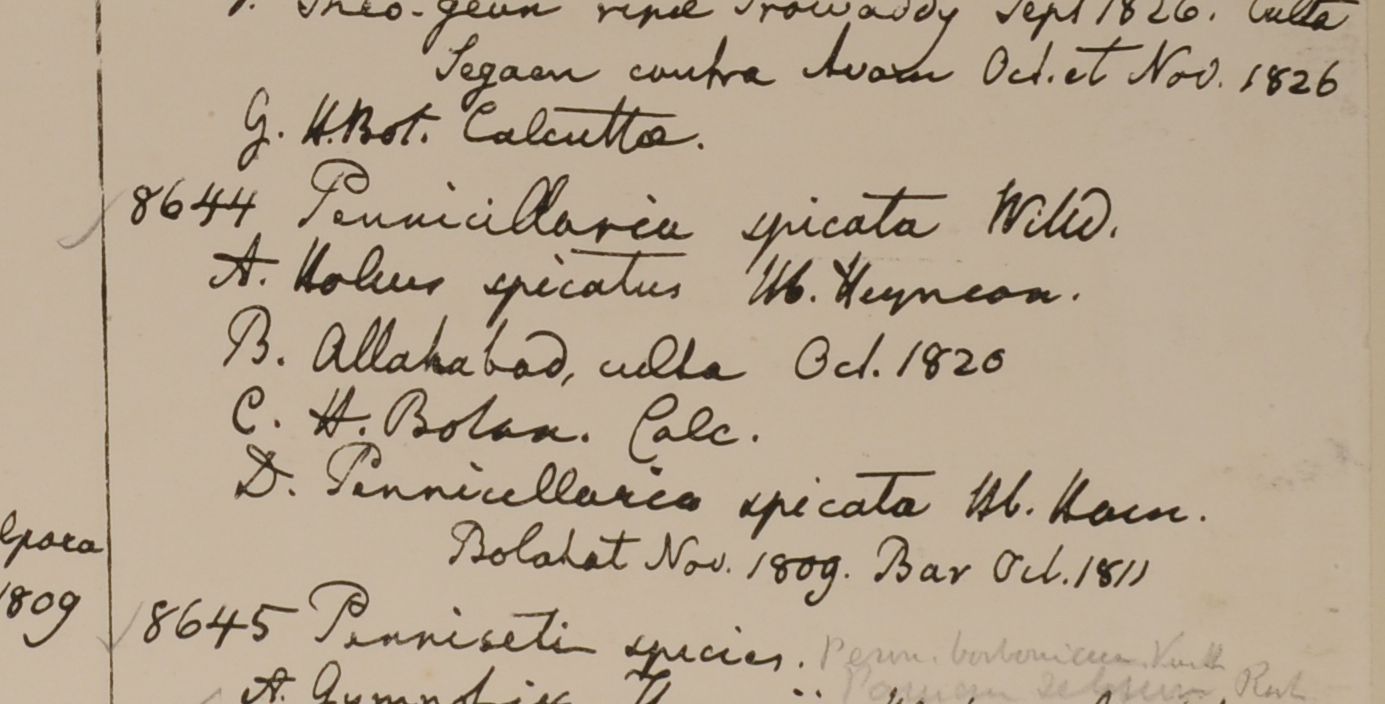 ripæ Irowaddy Sept 1826. Culta
Segaen contra Avam Oct. et Nov. 1826
G. H. Bot. Calcutta.
8644 Pennicillaria spicata Willd.
A. Holcus spicatus Hb. Heynean.
B. Allahabad, culta Oct. 1820
C. H. Botan. Calc.
D. Pennicellaria spicata Hb. Ham.
Bolahat Nov. 1809. Bar Oct. 1811
lpora
1809
8645 Penniseti species. Penn. borbonicum Kunth
A.